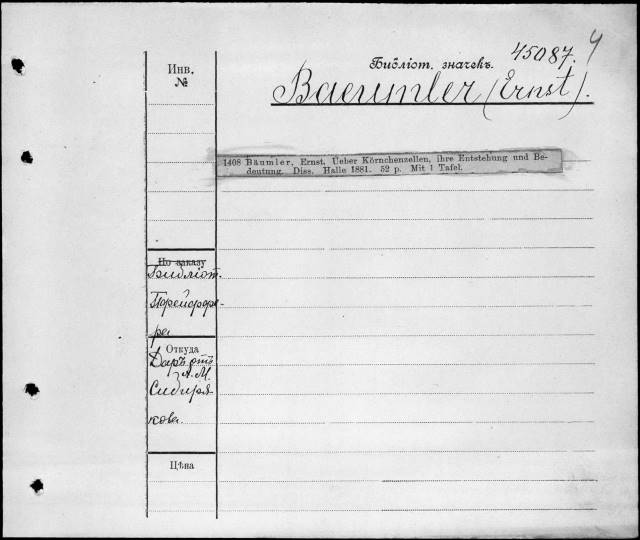 45087. 4
Инв.
№
Библіот. значекъ.
Baeumler (Ernst).
1408 Bäumler, Ernst. Ueber Körnchenzellen, ihre Entstehung und Be-
deutung. Diss. Halle 1881. 52 p. Mit 1 Tafel.
По заказу
Библіот.
ра
Откуда
Даръ отъ
А. М.
Сибиря-
кова.
Цѣна